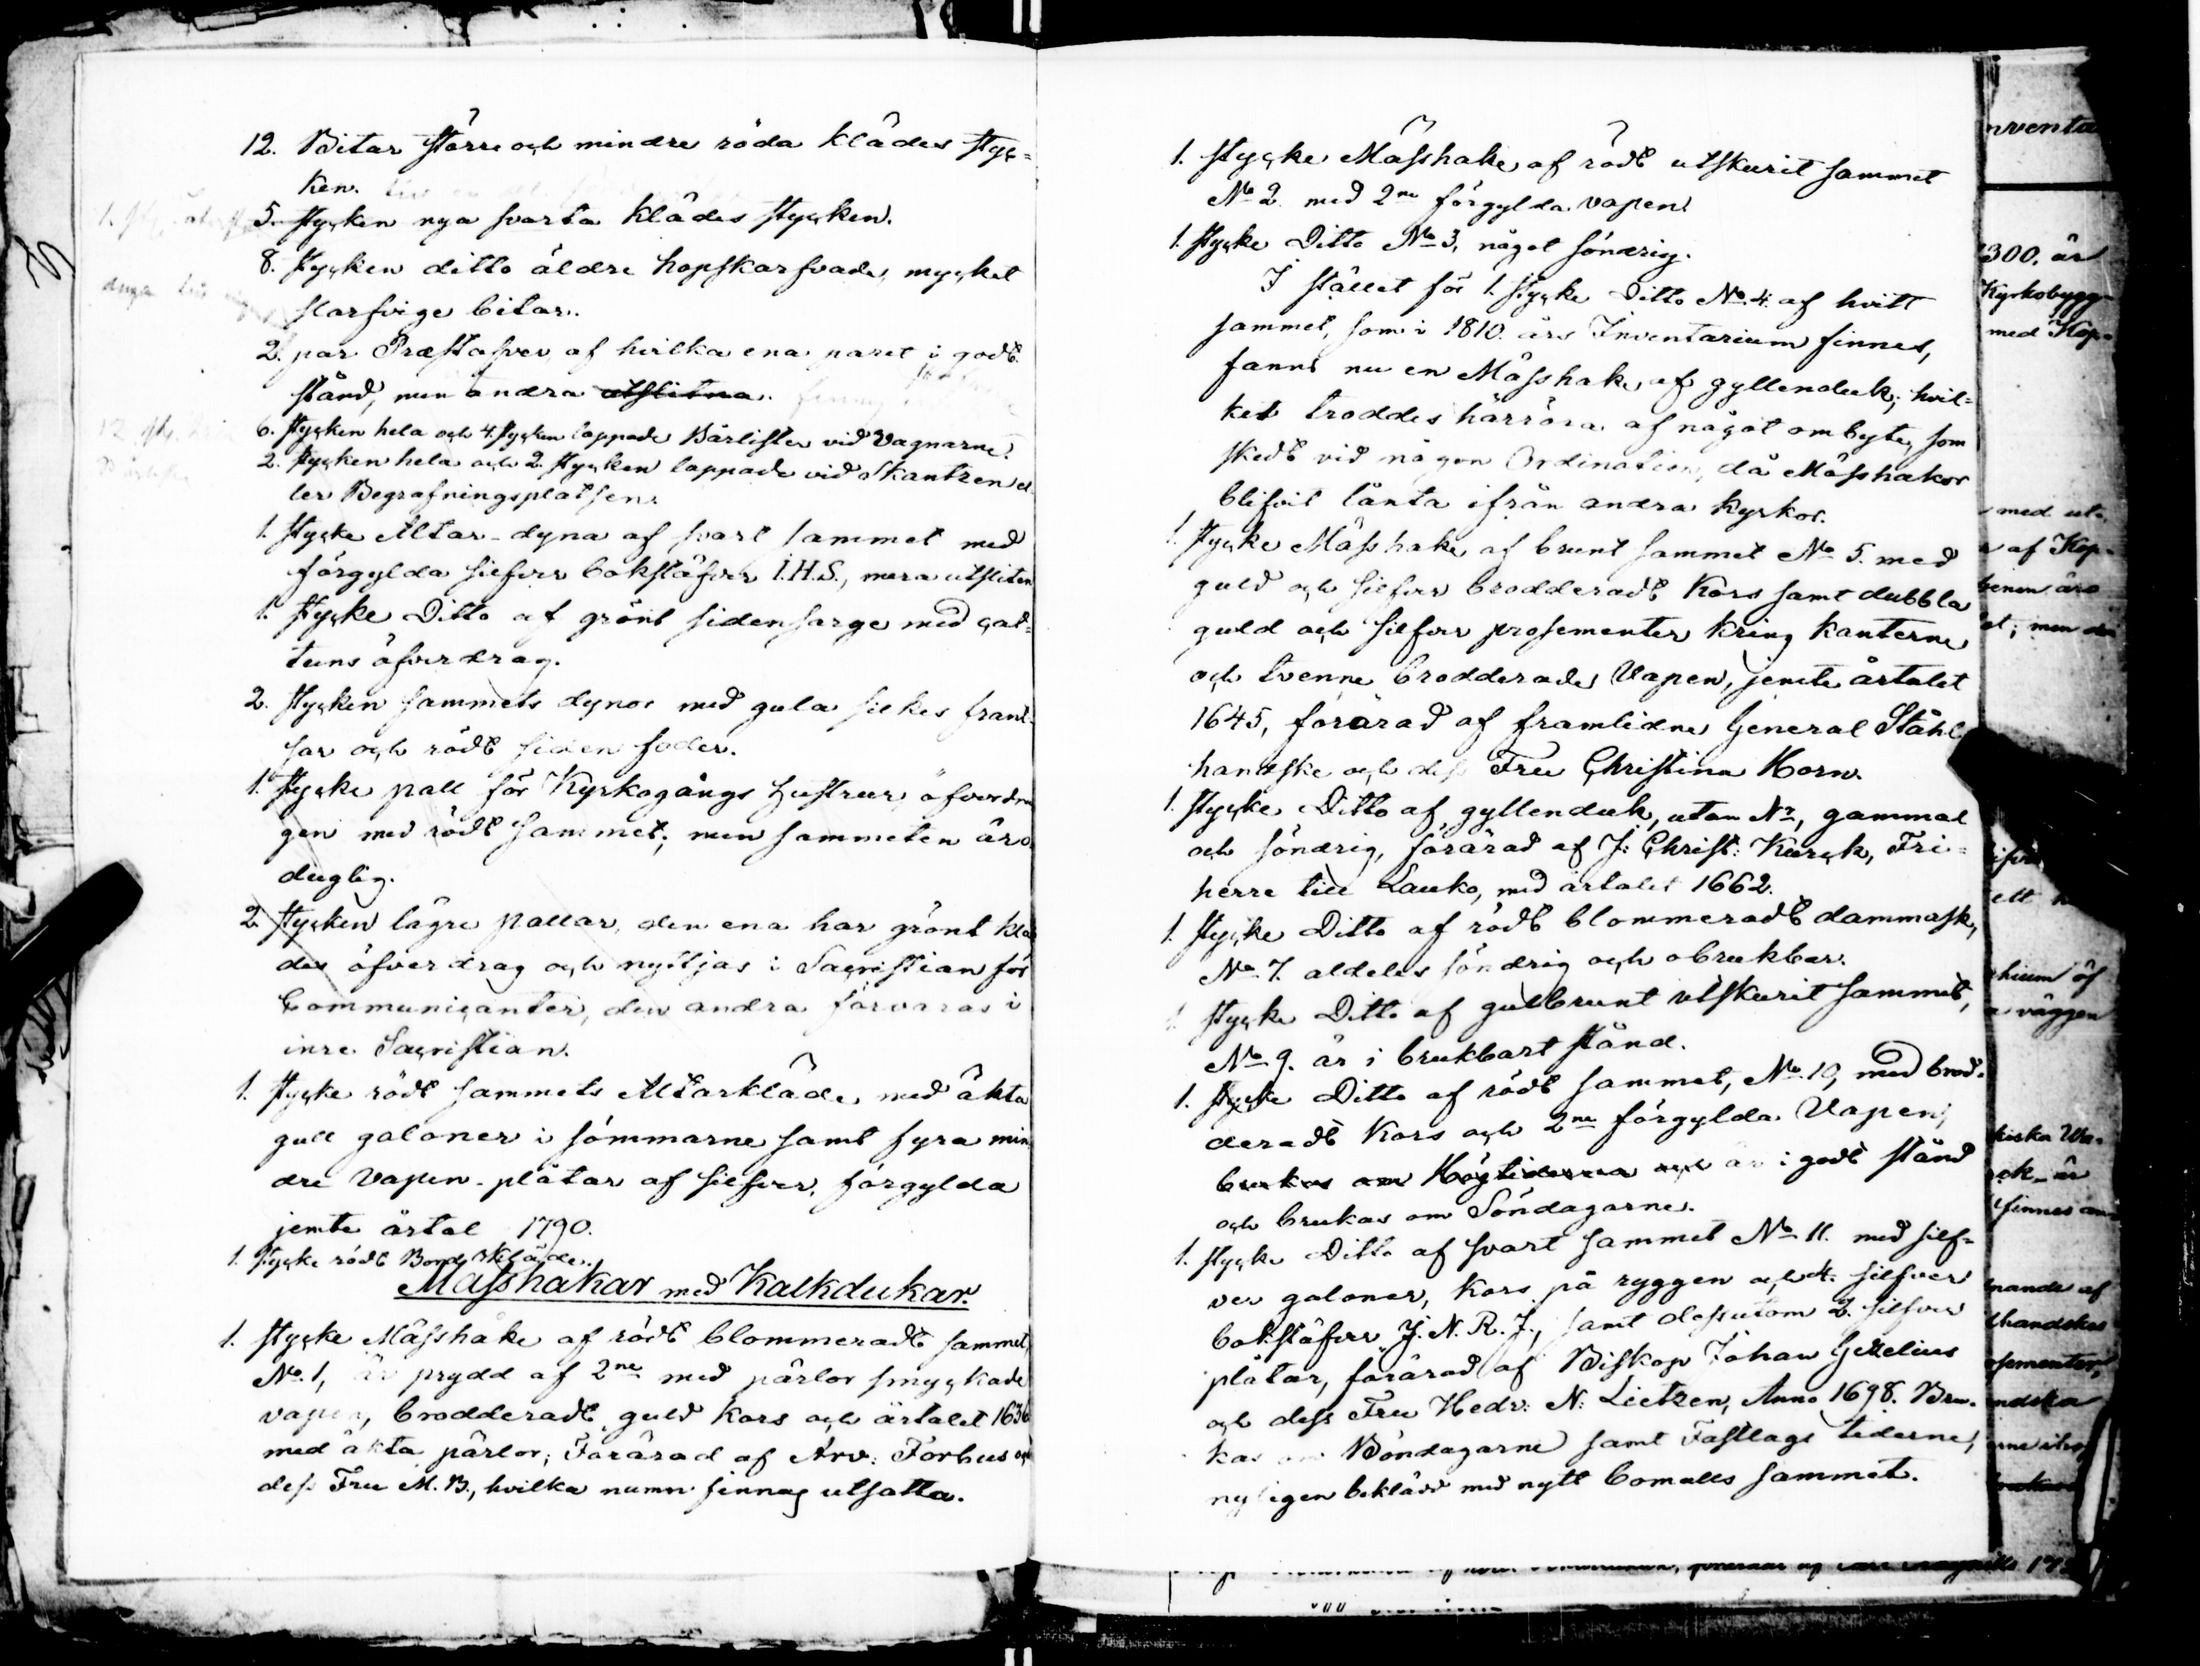 12. Bitar större och mindre röda klädes styc=
ken.
5. stycken nya svarta klädes stycken.
8. stycken ditto äldre hopskarfvade, mycket
slarfvige bitar.
2. par Præstafver, af hvilka ena paret i godt
stånd, men andra utslitna.
6. stycken hela och 4 stycken lappade Bårlister vid Vagnarne.
2. stycken hela och 2. stycken lappade vid Skantzen el
ler Begrafningsplatsen.
1. stycke Altar-dyna af svart sammet med
förgylda silfver bokstäfver I.H.S., mera utsliten
1. stycke Ditto af grönt sidensarge med cat=
tuns öfverdrag.
2. stycken sammets dynor med gula silkes frant=
sar och rödt siden foder.
1. stycke pall för Kyrkogångs hustrur, öfverdra
gen med rödt sammet; men sammeten är o
duglig.
2. stycken lägre pallar, den ena har grönt klä
des öfverdrag och nyttjas i Sacristian för
Communicanter, den andra förvaras i
inre Sacristian.
1. stycke rödt sammets Altarkläde, med äkta
gull galoner i sömmarne samt fyra min
dre Vapen-plåtar af silfver, förgylda
jemte årtal 1790.
1. stycke rödt Bordskläde.
Mässhakar med Kalkdukar.
1. stycke Mässhake af rödt blommeradt sammet,
No. 1, är prydd af 2ne med pärlor smyckade
vapen, brodderadt guld kors och årtalet 1636
med äkta pärlor; Förärad af Arv: Forbus och
dess Fru M. B., hvilka namn finnas utsatta.
1. stycke Mässhake af rödt utskurit sammet
No 2. med 2ne förgylda vapen.
1. stycke Ditto No 3, något söndrig.
I stället för 1. stycke Ditto No. 4. af hvitt
sammet, som i 1810. års Inventarium finnes,
fanns nu en Mässhake, af gyllenduk; hvil=
ket troddes härröra af något ombyte, som
skedt vid någon Ordination, då Mässhakor
blifvit lånta ifrån andra Kyrkor.
1. stycke Mässhake af brunt sammet No 5. med
guld och silfver brodderadt Kors samt dubbla
guld och silfver prosementer kring kanterne
och tvenne brodderade Vapen, jemte årtalet
1645, förärad af framlidne General Stål
handske och dess Fru Christina Horn.
1. stycke Ditto af gyllenduk, utan Nr, gammal
och söndrig, förärad af J: Christ: Kurck, Fri=
herre till Lauko, med årtalet 1662.
1. stycke Ditto af rödt blommeradt dammask,
No. 7. aldeles söndrig och obrukbar.
1. stycke Ditto af gulbrunt utskurit sammet,
No 9. är i brukbart stånd.
1. stycke Ditto af rödt sammet, No. 10, med brod=
deradt Kors och 2ne förgylda Vapen;
brukas om Högtiderna och är i godt stånd
och brukas om Söndagarne.
1. stycke Ditto af svart sammet No 11. med silf=
ver galoner, kors på ryggen och 4. silfver
bokstäfver J. N. R. J., samt dessutom 2. silfver
plåtar, förärad af Biskop Johan Gezelius
och dess Fru Hedv: N: Lietzen, Anno 1698. Bru=
kas om Böndagarne samt Fastlags tiderne,
nyligen beklädd med nytt bomulls sammet.
300. år
Kyrkobygg=
med Kop=
med ut=
af Kop=